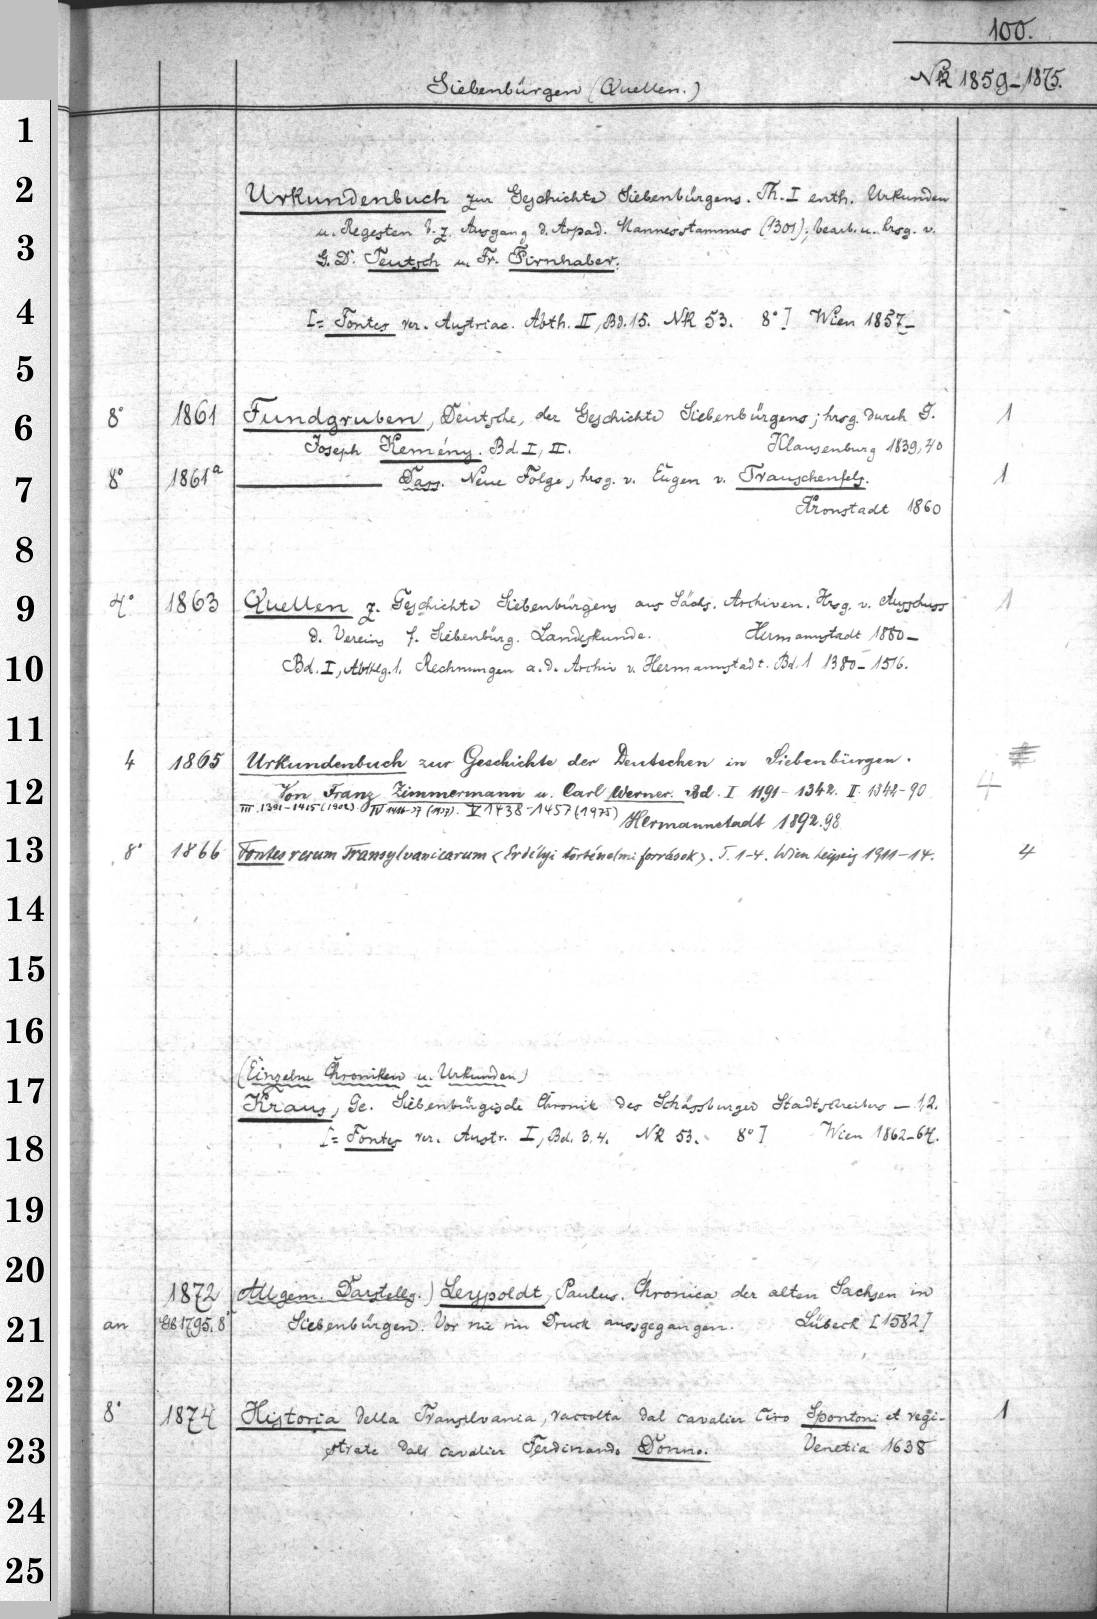 100.
Siebenbürgen (Quellen.)
NR 1859-1875.
1
2
3
4
5
6
7
8
9
10
11
12
13
14
15
16
17
18
19
20
21
22
23
24
25
Urkundenbuch zur Geschichte Siebenbürgens. Th. I enth. Urkunden
u. Regesten b. z. Ausgang d. Arpad. Mannesstammes (1301); bearb. u. hrsg. v.
G. D. Teutsch u. Fr. Firnhaber.
[= Fontes rer. Austriac. Abth. II, Bd. 15. NR 53. 8°] Wien 1857-
8° 1861 Fundgruben, Deutsche, der Geschichte Siebenbürgens; hrsg. durch G. 1
Joseph Kemény. Bd. I, II. Klausenburg 1839, 40
8° 1861a Dass. Neue Folge, hrsg. v. Eugen v. Trauschenfels. 1
Kronstadt 1860
4° 1863 Quellen z. Geschichte Siebenbürgens aus Sächs. Archiven. Hrsg. v. Ausschuss 1
d. Vereins f. Siebenbürg. Landeskunde. Hermannstadt 1880-
Bd. I, Abthlg. 1. Rechnungen a. d. Archiv v. Hermannstadt. Bd. 1 1380-1516.
4 1865 Urkundenbuch zur Geschichte der Deutschen in Siebenbürgen.
Von Franz Zimmermann u. Carl Werner. Bd. I 1191-1342. II. 1342-90 4
III. 1391-1415 (1902). IV 1416-37 (1937). V 1438-1457 (1975) Hermannstadt 1892.98
8° 1866 Fontes rerum Transylvanicarum <Erdélyi történelmi források>. T. 1-4. Wien Leipzig 1911-14. 4
(Einzelne Chroniken u. Urkunden)
Kraus, Ge. Siebenbürgische Chronik des Schässburger Stadtschreibers - 12.
[= Fontes rer. Austr. I, Bd. 3. 4. NR 53. 8°] Wien 1862-64.
1872 Allgem. Darstellg.) Leypoldt, Paulus. Chronica der alten Sachsen in
an Gb 1795. 8° Siebenbürgen. Vor nie im Druck aussgegangen. Lübeck [1582]
8° 1874 Historia della Transilvania, raccolta dal cavalier Ciro Spontoni et regi- 1
strata dall cavalier Ferdinando Donno. Venetia 1638